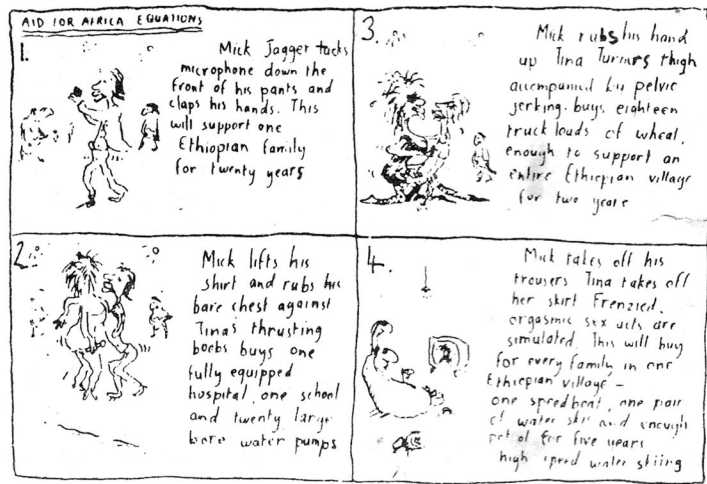 AID FOR AFRICA EQUATIONS
1.
Mick Jagger tucks
microphone down the
front of his pants and
claps his hands. This
will support one
Ethiopian family
for twenty years
2
Mick lifts his
shirt and rubs his
bare chest against
Tinas thrusting
boobs buys one
fully equipped
hospital, one school
and twenty large
bore water pumps
3.
Mick rubs his hand
up Tina Turners thigh
accompanied by pelvic
jerking. buys eighteen
truck loads of wheat,
enough to support an
entire Ethiopian village
for two years
4.
Mick takes off his
trousers Tina takes off
her skirt Frenzied,
orgasmic sex acts are
simulated. This will buy
for every family in one
Ethiopian village –
one speedboat, one pair
of water skis and enough
petrol for five years
high speed water skiing